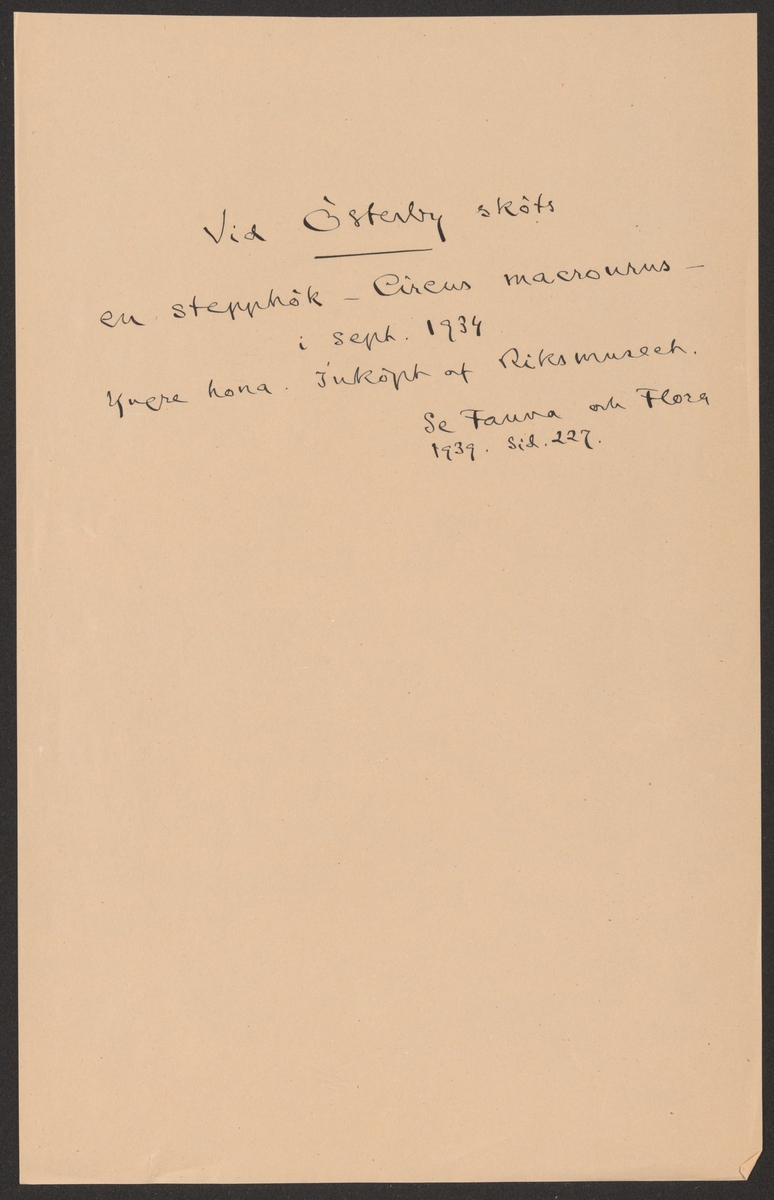 Vid Österby sköts
en stepphök – Circus macrourus –
i Sept. 1934
Yngre hona. Inköpt af Riksmuseet.
Se Fauna och Flora
1939. Sid. 227.